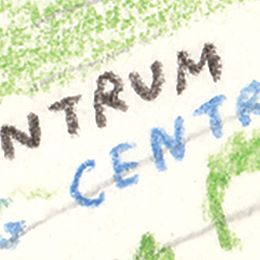 NTRUM
CENTR